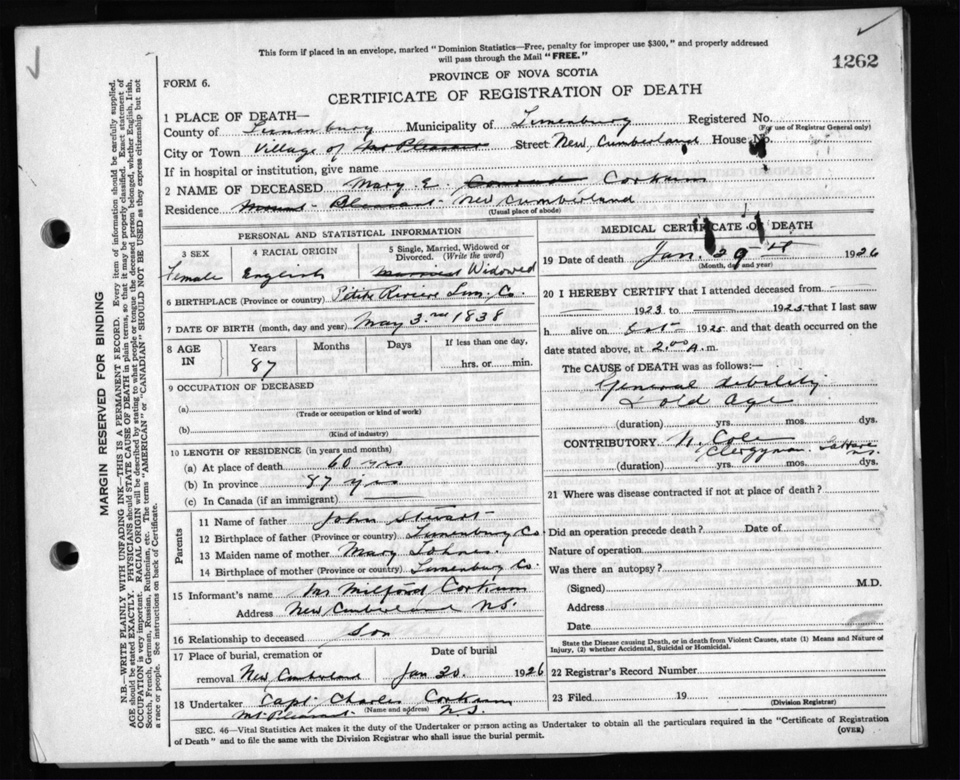 This form if placed in an envelope, marked "Dominion Statistics—Free, penalty for improper use $300," and properly addressed
will pass through the Mail "FREE."
1262
PROVINCE OF NOVA SCOTIA
FORM 6.
CERTIFICATE OF REGISTRATION OF DEATH
1 PLACE OF DEATH—
Registered No.
(For use of Registrar General only)
County of Lunenburg Municipality of Lunenburg
City or Town Village of Mt Pleasant Street New Cumberland House No.
If in hospital or institution, give name
2 NAME OF DECEASED Mary E. Conrad Corkum
Residence Mount Pleasant New Cumberland
(Usual place of abode)
PERSONAL AND STATISTICAL INFORMATION
3 SEX 4 RACIAL ORIGIN 5 Single, Married, Widowed or
Divorced. (Write the word)
Female English married Widowed
6 BIRTHPLACE (Province or country) Petite Riviere Lun. Co.
7 DATE OF BIRTH (month, day and year) May 3rd 1838
8 AGE IN Years Months Days If less than one day,
87 hrs. or min.
9 OCCUPATION OF DECEASED
(a)
(Trade or occupation or kind of work)
(b)
(Kind of industry)
10 LENGTH OF RESIDENCE (in years and months)
(a) At place of death 60 yrs
(b) In province 87 yrs
(c) In Canada (if an immigrant)
Parents
11 Name of father John Stuart
12 Birthplace of father (Province or country) Lunenburg Co.
13 Maiden name of mother Mary
14 Birthplace of mother (Province or country) Lunenburg Co.
15 Informant's name Mr Milford Corkum
Address New Cumberland N.S.
16 Relationship to deceased Son
17 Place of burial, cremation or Date of burial
removal New Cumberland Jan 30 1926
18 Undertaker Capt Charles Corkum
(Name and address)
Mt Pleasant N.S.
MEDICAL CERTIFICATE OF DEATH
19 Date of death Jan. 29th 1926
(Month, day and year)
20 I HEREBY CERTIFY that I attended deceased from
1923 to 1925 that I last saw
h alive on Oct 1925 and that death occurred on the
date stated above, at 2.00 A.m.
The CAUSE of DEATH was as follows:—
General debility
& old age
(duration) yrs. mos. dys.
CONTRIBUTORY N. Cole
Clergyman LaHave N.S.
(duration) yrs. mos. dys.
21 Where was disease contracted if not at place of death?
Did an operation precede death? Date of
Nature of operation
Was there an autopsy?
(Signed) M.D.
Address
Date
State the Disease causing Death, or in death from Violent Causes, state (1) Means and Nature of
Injury, (2) whether Accidental, Suicidal or Homicidal.
22 Registrar's Record Number
23 Filed 19
(Division Registrar)
SEC. 46—Vital Statistics Act makes it the duty of the Undertaker or person acting as Undertaker to obtain all the particulars required in the "Certificate of Registration
of Death" and to file the same with the Division Registrar who shall issue the burial permit.
(OVER)
MARGIN RESERVED FOR BINDING
N.B.—WRITE PLAINLY WITH UNFADING INK—THIS IS A PERMANENT RECORD. Every item of information should be carefully supplied.
AGE should be stated EXACTLY. PHYSICIANS should STATE CAUSE OF DEATH in plain terms, so that it may be properly classified. Exact statement of
OCCUPATION is very important. RACIAL ORIGIN will be described by stating to what people or tongue the deceased person belonged, whether English, Irish,
Scotch, French, German, Russian, Ruthenian, etc. The terms "AMERICAN" or "CANADIAN" SHOULD NOT BE USED as they express citizenship but not
a race or people. See instructions on back of Certificate.